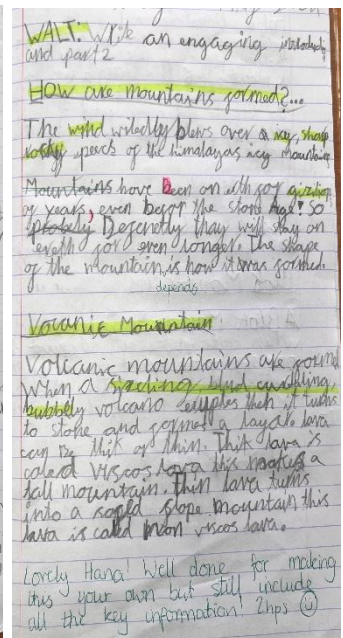 WALT: Write an engaging introducti
and part 2
How are mountains formed?...
The wind wiledly blows over a icy, sharp
rocky peeck of the himalayas icy mountains
Mountains have been on eth for
of years, even befor the stone age! So
Defenetly thay will stay on
ereth for even longer. The shape
of the mountain, is how it was formed.
depends
Vocanic Mountain
Volcanic mountains are formd
When a blud
bubbely volcano then it turns
to stone and formes a layer. lava
can be thik or thin. Thik lava is
caled viscos lava this makes a
tall mountain. Thin lava turns
into a slope mountain this
lava is calld non viscos lava.
Lovely Hana! Well done for making
this your own but still include
all the key information! 2hps